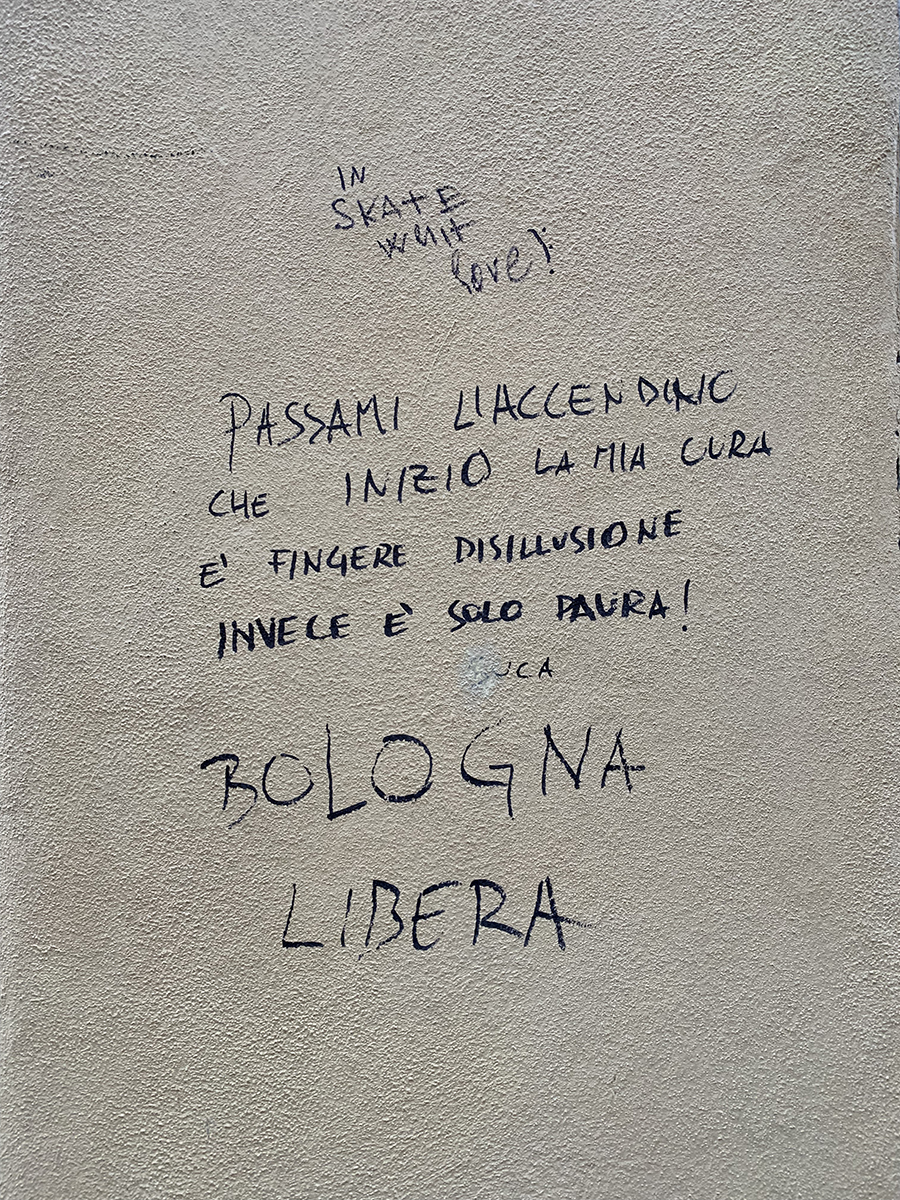 IN
SKATE
WHIT
love!
PASSAMI L'ACCENDINO
CHE INIZIO LA MIA CURA
E' FINGERE DISILLUSIONE
INVECE È SOLO PAURA!
SUCA
BOLOGNA
LIBERA